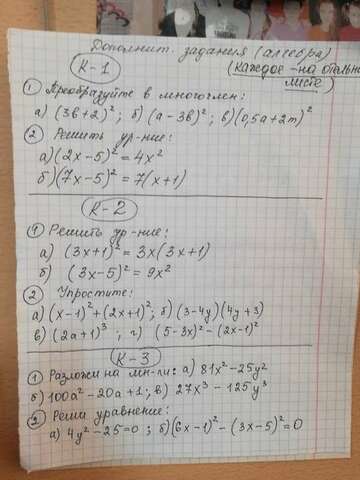 Дополнит. задания (алгебра)
К-1 (каждое-на отдельно
листе)
① Преобразуйте в многочлен:
а) (3в+2)²; б) (а-3в)²; в) (0,5а+2m)²
② Решить ур-ние:
а) (2x-5)² = 4x²
б) (7x-5)² = 7(x+1)
К-2
① Решить ур-ние:
а) (3x+1)² = 3x(3x+1)
б) (3x-5)² = 9x²
② Упростите:
а) (x-1)²+(2x+1)²; б) (3-4y)(4y+3)
в) (2a+1)³ ; г) (5-3x)²-(2x-1)²
К-3
① Разложи на мн-ли: а) 81x²-25y²
б) 100a²-20a+1; в) 27x³-125y³
② Реши уравнение:
а) 4y²-25=0; б) (6x-1)²-(3x-5)²=0